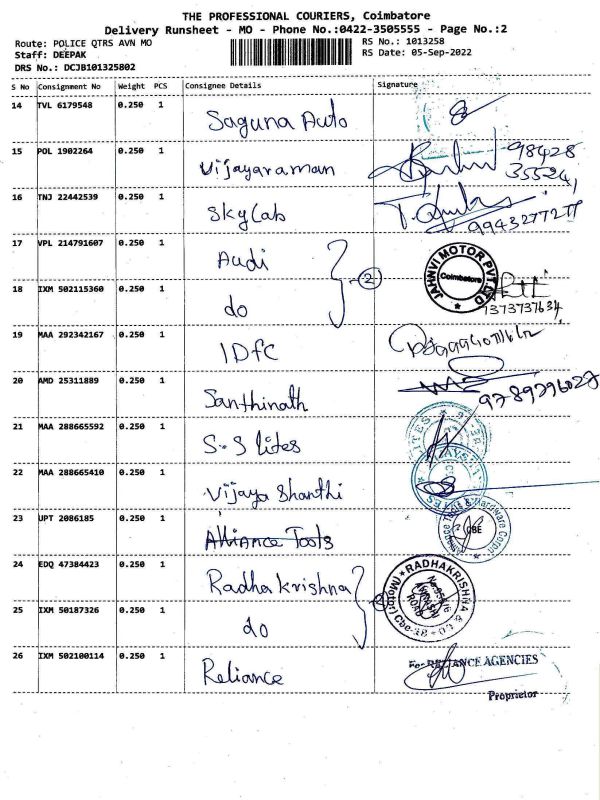 THE PROFESSIONAL COURIERS, Coimbatore
Delivery Runsheet - MO - Phone No.:0422-3505555 - Page No.:2
Route: POLICE QTRS AVN MO RS No.: 1013258
Staff: DEEPAK RS Date: 05-Sep-2022
DRS No.: DCJB101325802
S No Consignment No Weight PCS Consignee Details Signature
14 TVL 6179548 0.250 1 Saguna Auto
15 POL 1902264 0.250 1 Vijayaraman 98428
35524
16 TNJ 22442539 0.250 1 Skylab
9943277277
17 VPL 214791607 0.250 1 Audi JAHNVI MOTOR PVT. LTD Coimbatore
2
18 IXM 502115360 0.250 1 do
1373737634
19 MAA 292342167 0.250 1 IDFC
20 AMD 25311889 0.250 1 Santhinath 9789796027
21 MAA 288665592 0.250 1 S.S lites
22 MAA 288665410 0.250 1 Vijaya Shanthi
23 UPT 2086185 0.250 1 Alliance Tools Tools & Hardware Corpn CBE
24 EDQ 47384423 0.250 1 Radha krishna RADHAKRISHNA (Motor) Cbe-18 AVINASHI ROAD
2
25 IXM 50187326 0.250 1 do
26 IXM 502100114 0.250 1 Reliance For RELIANCE AGENCIES
Proprietor